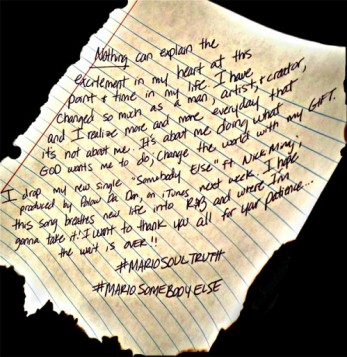 Nothing can explain the
excitement in my heart at this
point & time in my life. I have
changed so much as a man, artist, & creator,
and I realize more and more everyday that
it's not about me.. It's about me doing what
GOD wants me to do; Change the world with my GIFT.
I drop my new single "Somebody Else" Ft Nicki Minaj;
produced by Polow Da Don, on iTunes next week. I hope
this song breathes new life into R&B and where I'm
gonna take it! I want to thank you all for your patience...
the wait is over!!
#MARIOSOULTRUTH
#MARIOSOMEBODYELSE